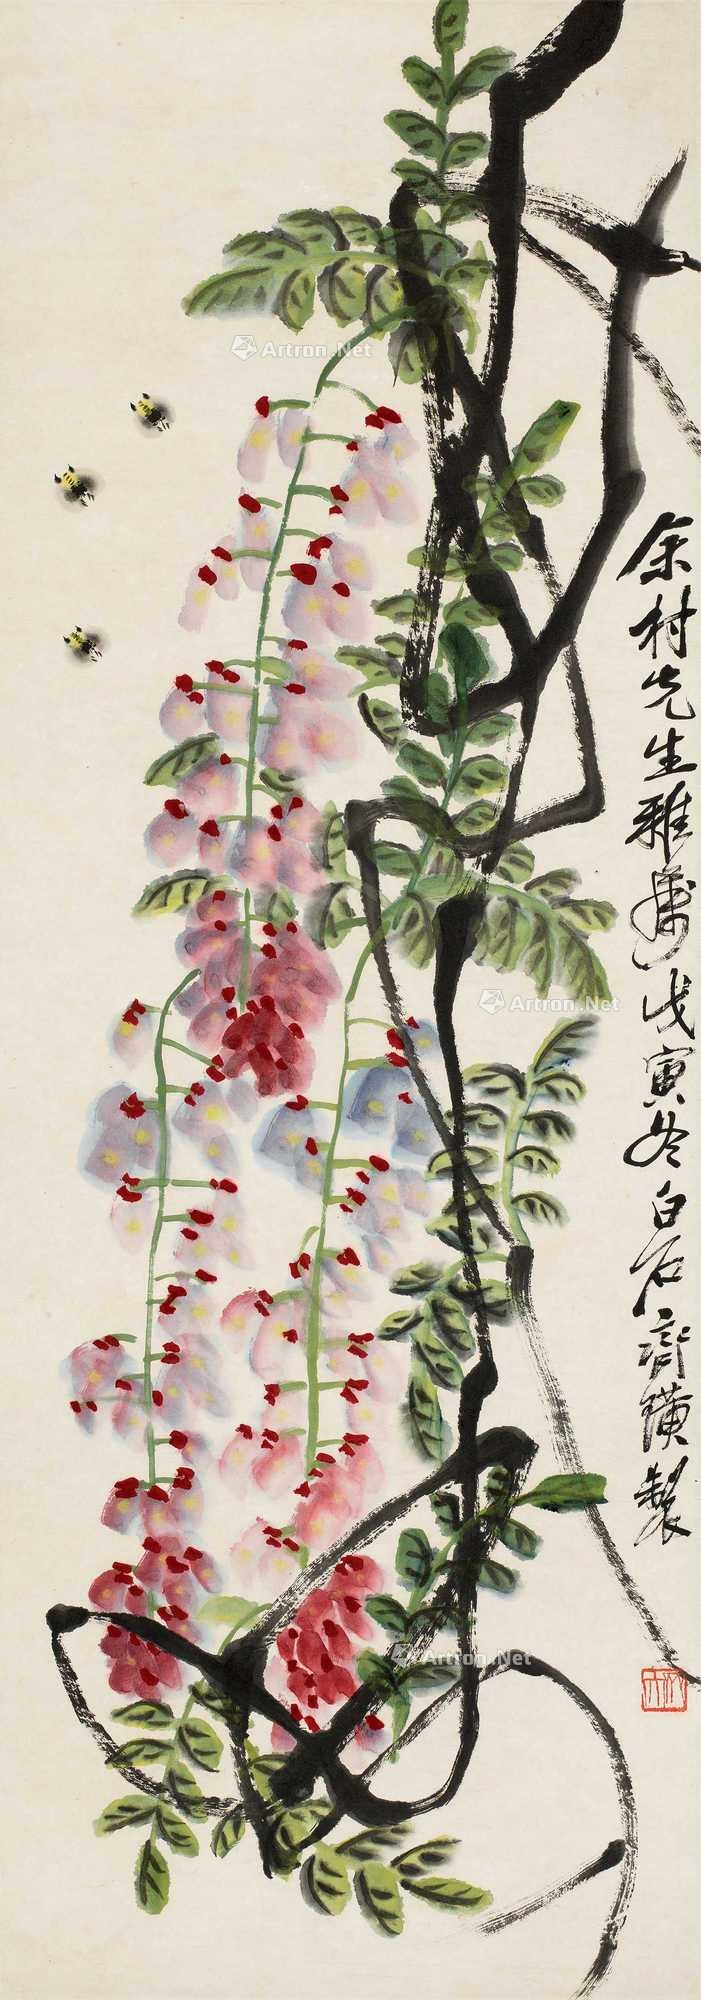 余村先生雅属戊寅冬白石齐璜製
Artron.Net
Artron.Net
Artron.Net